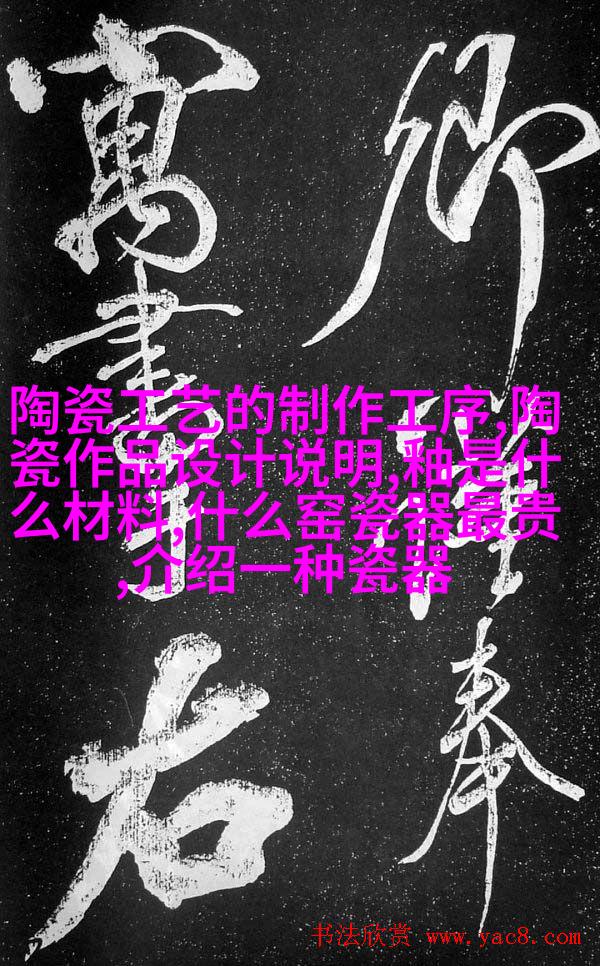 卿奉
寓書右
陶瓷工艺的制作工序,陶
瓷作品设计说明,釉是什
么材料,什么窑瓷器最贵
,介绍一种瓷器
书法欣赏 www.yac8.com